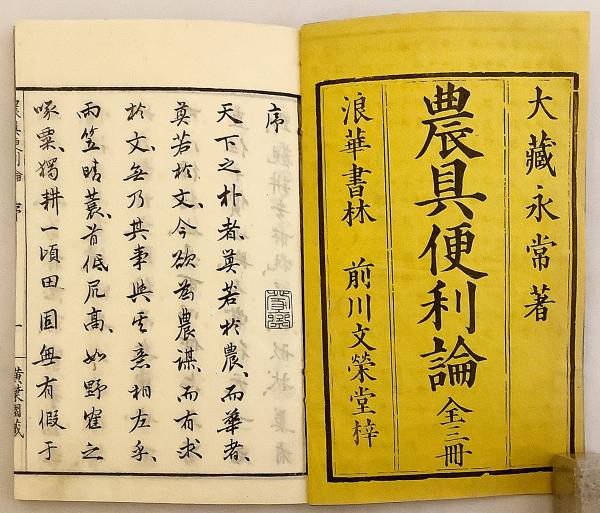 大藏永常著
農具便利論 全三冊
浪華書林 前川文榮堂梓
序
天下之朴者、莫若於農、而華者、
莫若於文、今欲為農謀、而有求
於文、無乃其事與其意相左乎、
雨笠晴蓑、首低尻高、如野雀之
啄粟、獨耕一頃田、固無有假于
農具便利論 序 一 黄葉園藏